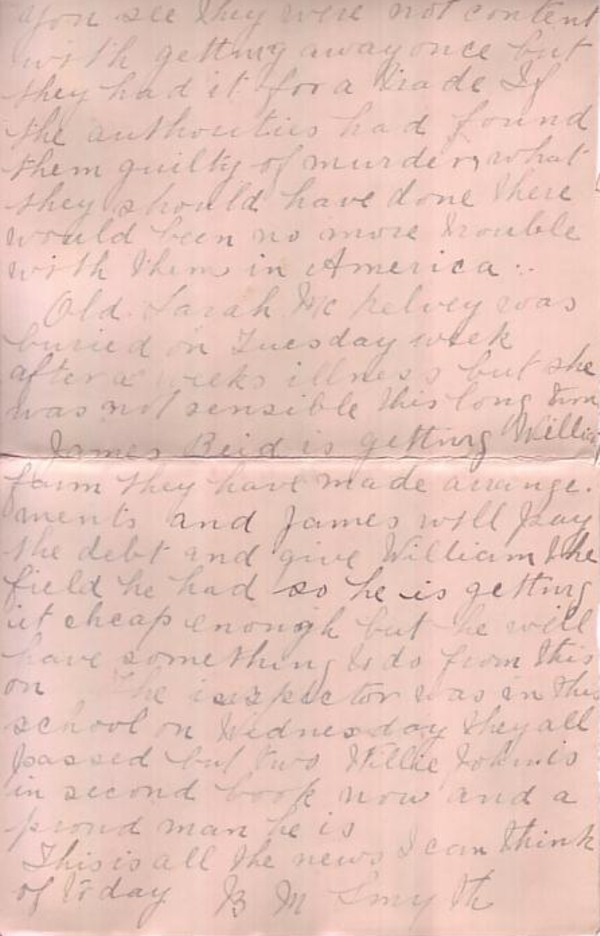 you see they were not content
with getting away once but
they had it for a trade If
the authorities had found
them guilty of murder, what
they should have done there
would been no more trouble
with them in America.
Old Sarah McKelvey was
buried on Tuesday week
after a weeks illness but she
was not sensible this long
James Reid is getting
farm they have made arrange-
ments and James will pay
the debt and give William the
field he had so he is getting
it cheap enough but he will
have something to do from this
on The inspector was in this
school on Wednesday they all
passed but two Willie John is
in second book now and a
proud man he is
This is all the news I can think
of to day B M Smyth